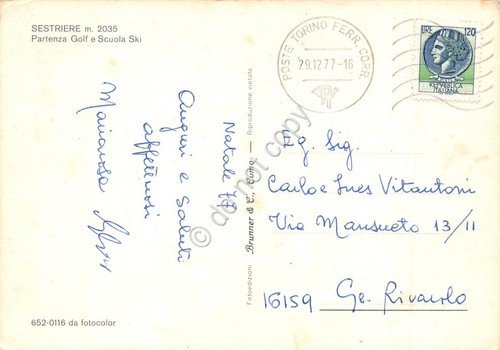 SESTRIERE m. 2035
Partenza Golf e Scuola Ski
POSTE TORINO FERR. CORR.
29.12.77-16
LIRE 120
REPVBBLICA
ITALIANA
Natale 77
Auguri e saluti
affettuosi
Mariarosa
Eg. Sig.
Carlo e Ines Vitantoni
Via Mansueto 13/11
16159 Ge. Rivarolo
Fotoedizioni Brunner & C., Como - Riproduzione vietata
652-0116 da fotocolor
do not copy